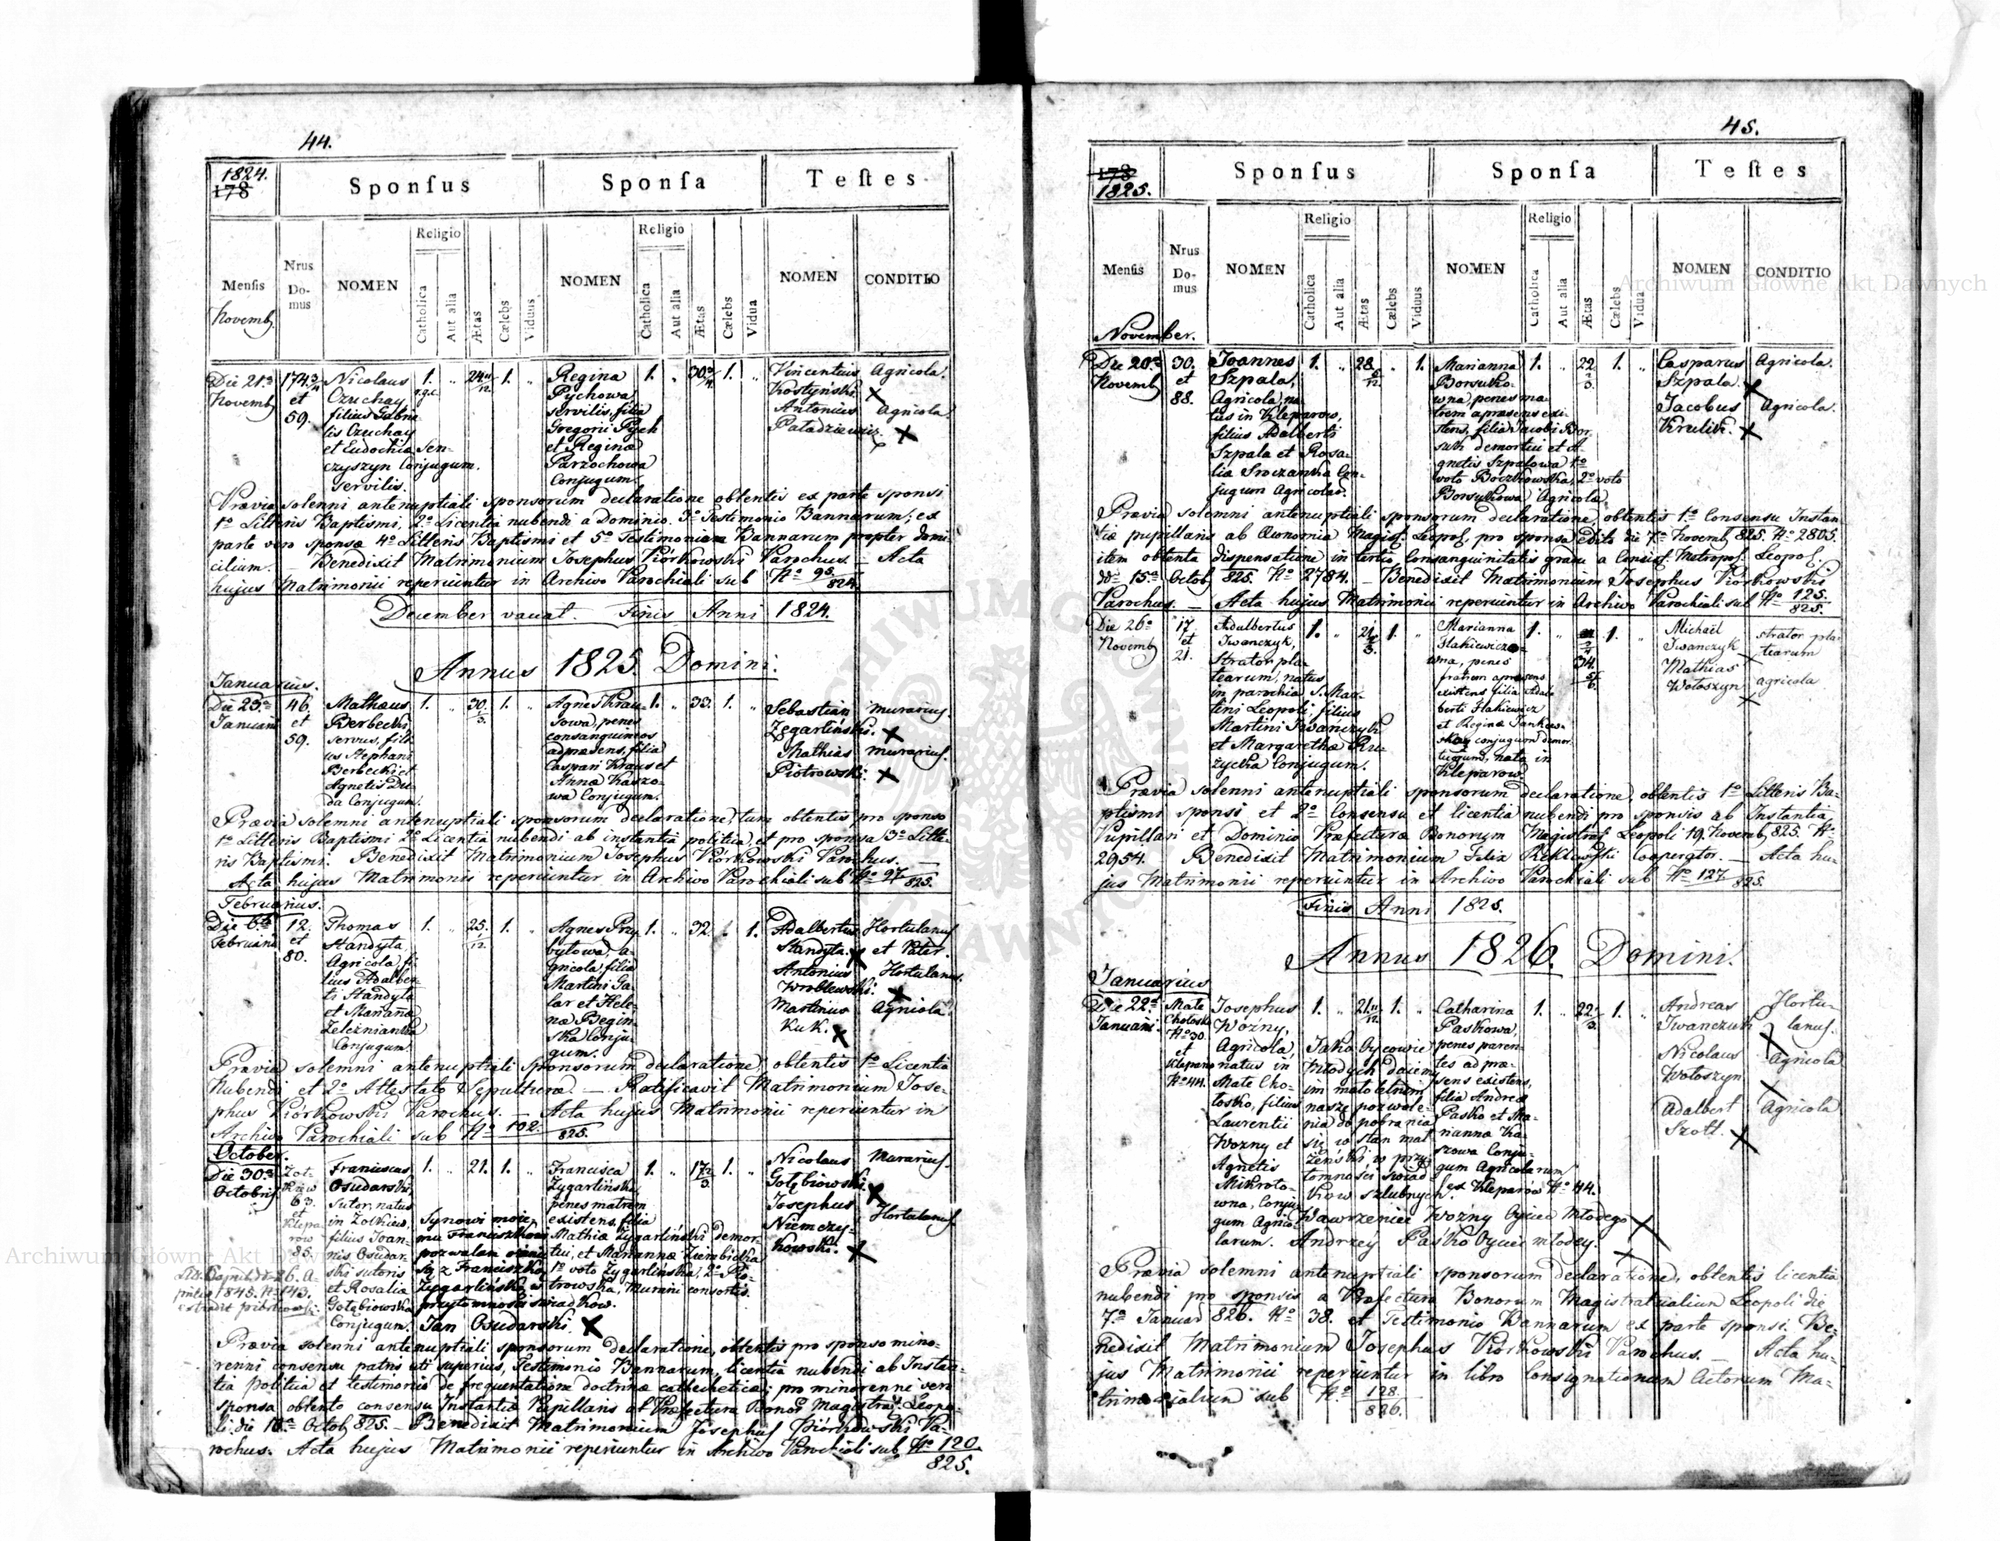 44.
1824.
178
Sponſus
Sponſa
Teſtes
Menſis
Novemb
Nrus Do- mus
NOMEN
Religio
Catholica
Aut alia
Ætas
Cælebs
Viduus
NOMEN
Religio
Catholica
Aut alia
Ætas
Cælebs
Vidua
NOMEN
CONDITIO
Die 21a
Novemb
174 3/4
et
59.
Nicolaus
Czuchay
filius Gabrie
lis Czuchay
et Eudochiæ Sen-
czyszyn Conjugum.
servilis.
1.
r.g.c.
„
24 11/12
1.
„
Regina
Pychowa,
servilis, filia
Gregorii Pych
et Reginæ
Parzochowa
Conjugum.
1.
„
30 3/4
1.
„
Vincentius
Kostyński.
Antonius
Agricola.
Agricola
Prævia solenni antenuptiali sponsorum declaratione obtentis ex parte sponsi
1o Litteris Baptismi, 2o Licentia nubendi a Dominio. 3o Testimonio Bannorum; ex
parte vero sponsæ 4o Litteris Baptismi et 5o Testimonium Bannorum propter domi-
cilium. – Benedixit Matrimonium Josephus Piórkowski Parochus. – Acta
hujus Matrimonii reperiuntur in Archivo Parochiali sub No 95/824.
December vacat. Finis Anni 1824.
Annus 1825. Domini.
Januarius.
Die 23a
Januarii
46.
et
59.
Mathæus
Berbecki
servus, fili-
us Stephani
Berbecki et
Agnetis Du-
da Conjugum.
1.
„
30. 1/3.
1.
„
Agnes Krau-
sowa, penes
consanguineos
adpræsens, filia
Caspari Kraus et
Annæ Kaszo-
wa Conjugum.
1.
„
33.
1.
„
Sebastian
Zegarliński.
Mathias
Piotrowski.
Murarius.
Murarius.
Prævia solemni antenuptiali sponsorum declaratione, tum obtentis pro sponso
1o Litteris Baptismi 2o Licentia nubendi ab instantia politica, et pro sponsa 3o Litte-
ris Baptismi. Benedixit Matrimonium Josephus Piórkowski Parochus. –
Acta hujus Matrimonii reperiuntur in Archivo Parochiali sub No 97/825.
Februarius.
Die 6a
Februarii
12.
et
80.
Thomas
Standyła,
Agricola, fi-
lius Adalber-
ti Standyła
et Marianæ
Zelezniaŉka
Conjugum.
1.
„
25. 1/12.
1.
„
Agnes Przy
byłowa, a-
gricola, filia
Martini Ga-
lar et Hele-
næ Begin-
ska Conju-
gum.
1.
„
32
„
1.
Adalbertus
Standyła.
Antonius
Wroblewski.
Martinus
Kuk.
Hortulanus
et Pater.
Hortulanus.
Agricola.
Prævia solemni antenuptiali sponsorum declaratione, obtentis 1o Licentia
Nubendi et 2o Attestato Sepulturæ – Ratificavit Matrimonium Jose-
phus Piórkowski Parochus. – Acta hujus Matrimonii reperiuntur in
Archivo Parochiali sub No 102./825.
October.
Die 30a
Octobris
63.
et
Klepa
row
85.
Franciscus
Osudarski,
Sutor, natus
in Zołkiew,
filius Joan-
nis Osudar-
ski sutoris
et Rosalia
Gołębiowska
Conjugum.
1.
„
21.
1.
„
Francisca
Zygarlińska,
penes matrem
existens, filia
Mathiæ Zygarliński demor-
tui, et Mariannæ Ziembicka
1o voto Zygarlińska, 2o Pio-
trowska, Murarii consortis.
1.
„
17 2/3
1.
„
Nicolaus
Gołębiowski.
Josephus
Niemczy-
kowski.
Murarius.
Hortulanus.
Synowi moje
mu Franciszkowi
pozwalam
się z Franciszką
Zygarlińską w
przytomności świadków.
Jan Osudarski.
Prævia solenni antenuptiali sponsorum declaratione, obtentis pro sponso mino-
renni consensu patris uti superius, Testimonio Bannorum, licentia nubendi ab Instan-
tia politica et testimonio de frequentatione doctrinæ catecheticæ; pro minorenni vero
sponsa obtento consensu Instantiæ Pupillaris
Octob 825. – Benedixit Matrimonium Josephus Piórkowski Pa-
rochus. Acta hujus Matrimonii reperiuntur in Archivo Parochiali sub No 120./825.
45.
178
1825.
Sponſus
Sponſa
Teſtes
Menſis
November.
Nrus Do- mus
NOMEN
Religio
Catholica
Aut alia
Ætas
Cælebs
Viduus
NOMEN
Religio
Catholica
Aut alia
Ætas
Cælebs
Vidua
NOMEN
CONDITIO
Die 20a
Novemb
30.
et
88.
Joannes
Szpala,
Agricola, na-
tus in Kleparow,
filius Adalberti
Szpala et Rosa-
lia Sroczanka Con-
jugum Agricolar.
1.
„
28
„
1.
Marianna
Borsuko-
wna, penes ma-
trem apræsens exi-
stens, filia Jacobi Bor-
suk demortui et A-
gnetis Szpalowa 1o
voto Boczkowska, 2o voto
Borsukowa Agricola.
1.
„
22 2/3.
1.
„
Casparus
Szpala.
Jacobus
Krulik.
Agricola.
Agricola.
Prævia solemni antenuptiali sponsorum declaratione, obtentis 1o Consensu Instan
tiæ pupillaris ab Œconomia Magist. Leopol. pro sponsa edito die 7a Novemb 825. No 2805.
item obtenta dispensatione in tertio Consanguinitatis gradu a Consist. Metropol. Leopol.
15a Octob 825. No 2784. – Benedixit Matrimonium Josephus Piórkowski
Parochus. – Acta hujus Matrimonii reperiuntur in Archivo Parochiali sub No 125./825.
Die 26a
Novemb
17
et
21.
Adalbertus
Iwanczyk,
strator pla-
tearum, natus
in parochia S. Mar-
tini Leopoli, filius
Martini Iwańczyk
et Margarethæ Ru-
życka Conjugum.
1.
„
1.
„
Marianna
Flakiewiczo-
wna, penes
fratrem apræsens
existens filia Adal-
berti Flakiewicz
et Reginæ Jankow-
ska conjugum demor-
tuorum, nata in
Kleparow.
1.
„
34. 5/6.
1.
„
Michaël
Iwanczyk
Mathias
Wołoszyn
strator pla-
tearum
agricola
Prævia solenni antenuptiali sponsorum declaratione, obtentis 1o Litteris Ba-
ptismi sponsi et 2o Consensu et licentia nubendi pro sponsis ab Instantia
Pupillari et Dominio Præfecturæ Bonorum Magistrat Leopoli 19. Novemb 825. No
2954. Benedixit Matrimonium Felix Rekłowski Cooperator. – Acta hu-
jus Matrimonii reperiuntur in Archivo Parochiali sub No 127/825.
Finis Anni 1825.
Annus 1826. Domini.
Januarius
Die 22a
Januarii.
Mate
Chołosko
No 30.
et
Kleparow
No 44.
Josephus
Wozny,
Agricola,
natus in
Małe Cho-
łosko, filius
Laurentii
Wozny et
Agnetis
Mikroto-
wna, Conju-
gum Agrico-
larum.
1.
„
21 11/12
1.
„
Catharina
Paskowa,
penes paren-
tes ad præ-
sens existens,
filia Andreæ
Pasko et Ma-
rianna Ka-
szowa Conju-
gum Agricolarum
ex Kleparow No 44.
1.
„
22 2/3.
1.
„
Andreas
Iwanczuk
Nicolaus
Wołoszyn
Adalbert
Szott.
Hortu-
lanus.
Agricola
Agricola
Jako Oycowie
Młodych dajemy
im małoletnim
nasze pozwole-
nia do pobrania
się w stan mał
żeński w przy-
tomności świad
ków szlubnych.
Wawrzeniec Woźny Oyciec młodego
Andrzey Paśko Oyciec młodey.
Prævia solemni antenuptiali sponsorum declaratione, obtentis licentia
nubendi pro sponsis a Præfectura Bonorum Magistratualium Leopoli die
7a Januar 826. No 38. et Testimonio Bannorum ex parte sponsi. Be-
nedixit Matrimonium Josephus Piórkowski Parochus. – Acta hu-
jus Matrimonii reperiuntur in libro Consignationum Actorum Ma-
trimonialium sub No 128./826.
Archiwum Główne Akt Dawnych